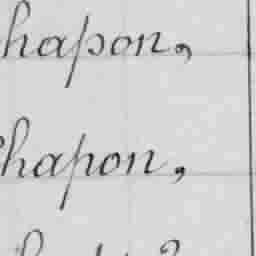 hapon,
hapon,